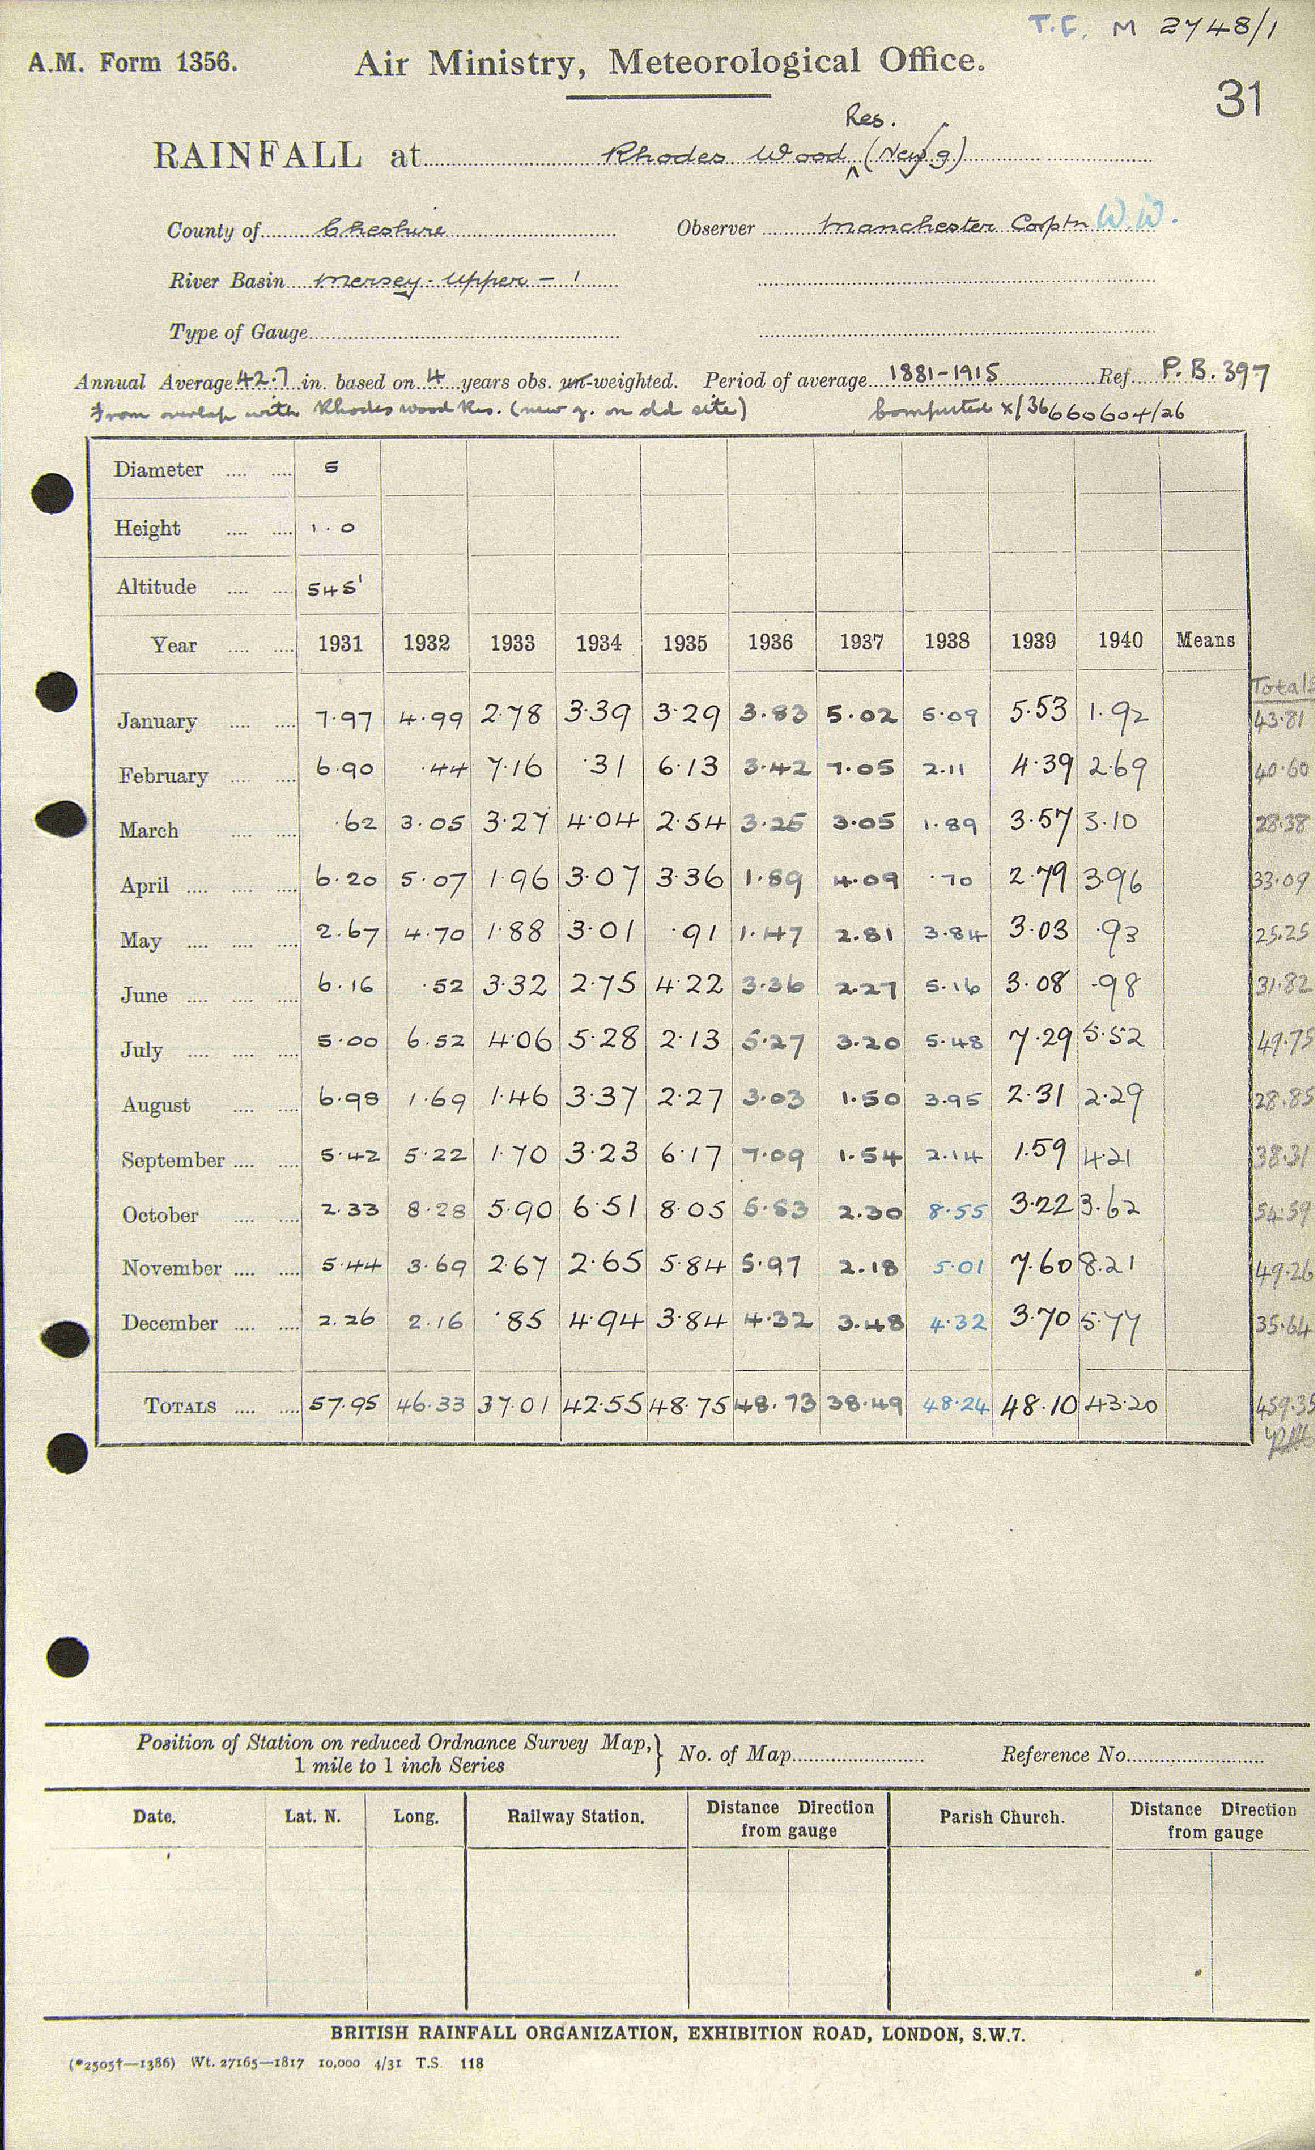 T.C. M 2748/1
A.M. Form 1356. Air Ministry, Meteorological Office.
31
Res.
RAINFALL at Rhodes Wood ^ (New g)
County of Cheshire Observer Manchester Corptn W.W.
River Basin Mersey. Upper - 1
Type of Gauge
Annual Average 42.7 in. based on 4 years obs. un-weighted. Period of average 1881-1915 Ref. P.B. 397
From overlap with Rhodes wood Res. (new g. on old site) Computed x/36 660604/26
Diameter 5
Height 1.0
Altitude 545'
Year 1931 1932 1933 1934 1935 1936 1937 1938 1939 1940 Means
Totals
January 7.97 4.99 2.78 3.39 3.29 3.83 5.02 5.09 5.53 1.92 43.81
February 6.90 .44 7.16 .31 6.13 3.42 7.05 2.11 4.39 2.69 40.60
March .62 3.05 3.27 4.04 2.54 3.25 3.05 1.89 3.57 3.10 28.38
April 6.20 5.07 1.96 3.07 3.36 1.89 4.09 .70 2.79 3.96 33.09
May 2.67 4.70 1.88 3.01 .91 1.47 2.81 3.84 3.03 .93 25.25
June 6.16 .52 3.32 2.75 4.22 3.36 2.27 5.16 3.08 .98 31.82
July 5.00 6.52 4.06 5.28 2.13 5.27 3.20 5.48 7.29 5.52 49.75
August 6.98 1.69 1.46 3.37 2.27 3.03 1.50 3.95 2.31 2.29 28.85
September 5.42 5.22 1.70 3.23 6.17 7.09 1.54 2.14 1.59 4.21 38.31
October 2.33 8.28 5.90 6.51 8.05 5.83 2.30 8.55 3.22 3.62 54.59
November 5.44 3.69 2.67 2.65 5.84 5.97 2.18 5.01 7.60 8.21 49.26
December 2.26 2.16 .85 4.94 3.84 4.32 3.48 4.32 3.70 5.77 35.64
TOTALS 57.95 46.33 37.01 42.55 48.75 48.73 38.49 48.24 48.10 43.20 459.35
Position of Station on reduced Ordnance Survey Map, 1 mile to 1 inch Series } No. of Map Reference No.
Date. Lat. N. Long. Railway Station. Distance Direction from gauge Parish Church. Distance Direction from gauge
BRITISH RAINFALL ORGANIZATION, EXHIBITION ROAD, LONDON, S.W.7.
(*2505†—1386) Wt. 27165—1817 10,000 4/31 T.S. 118